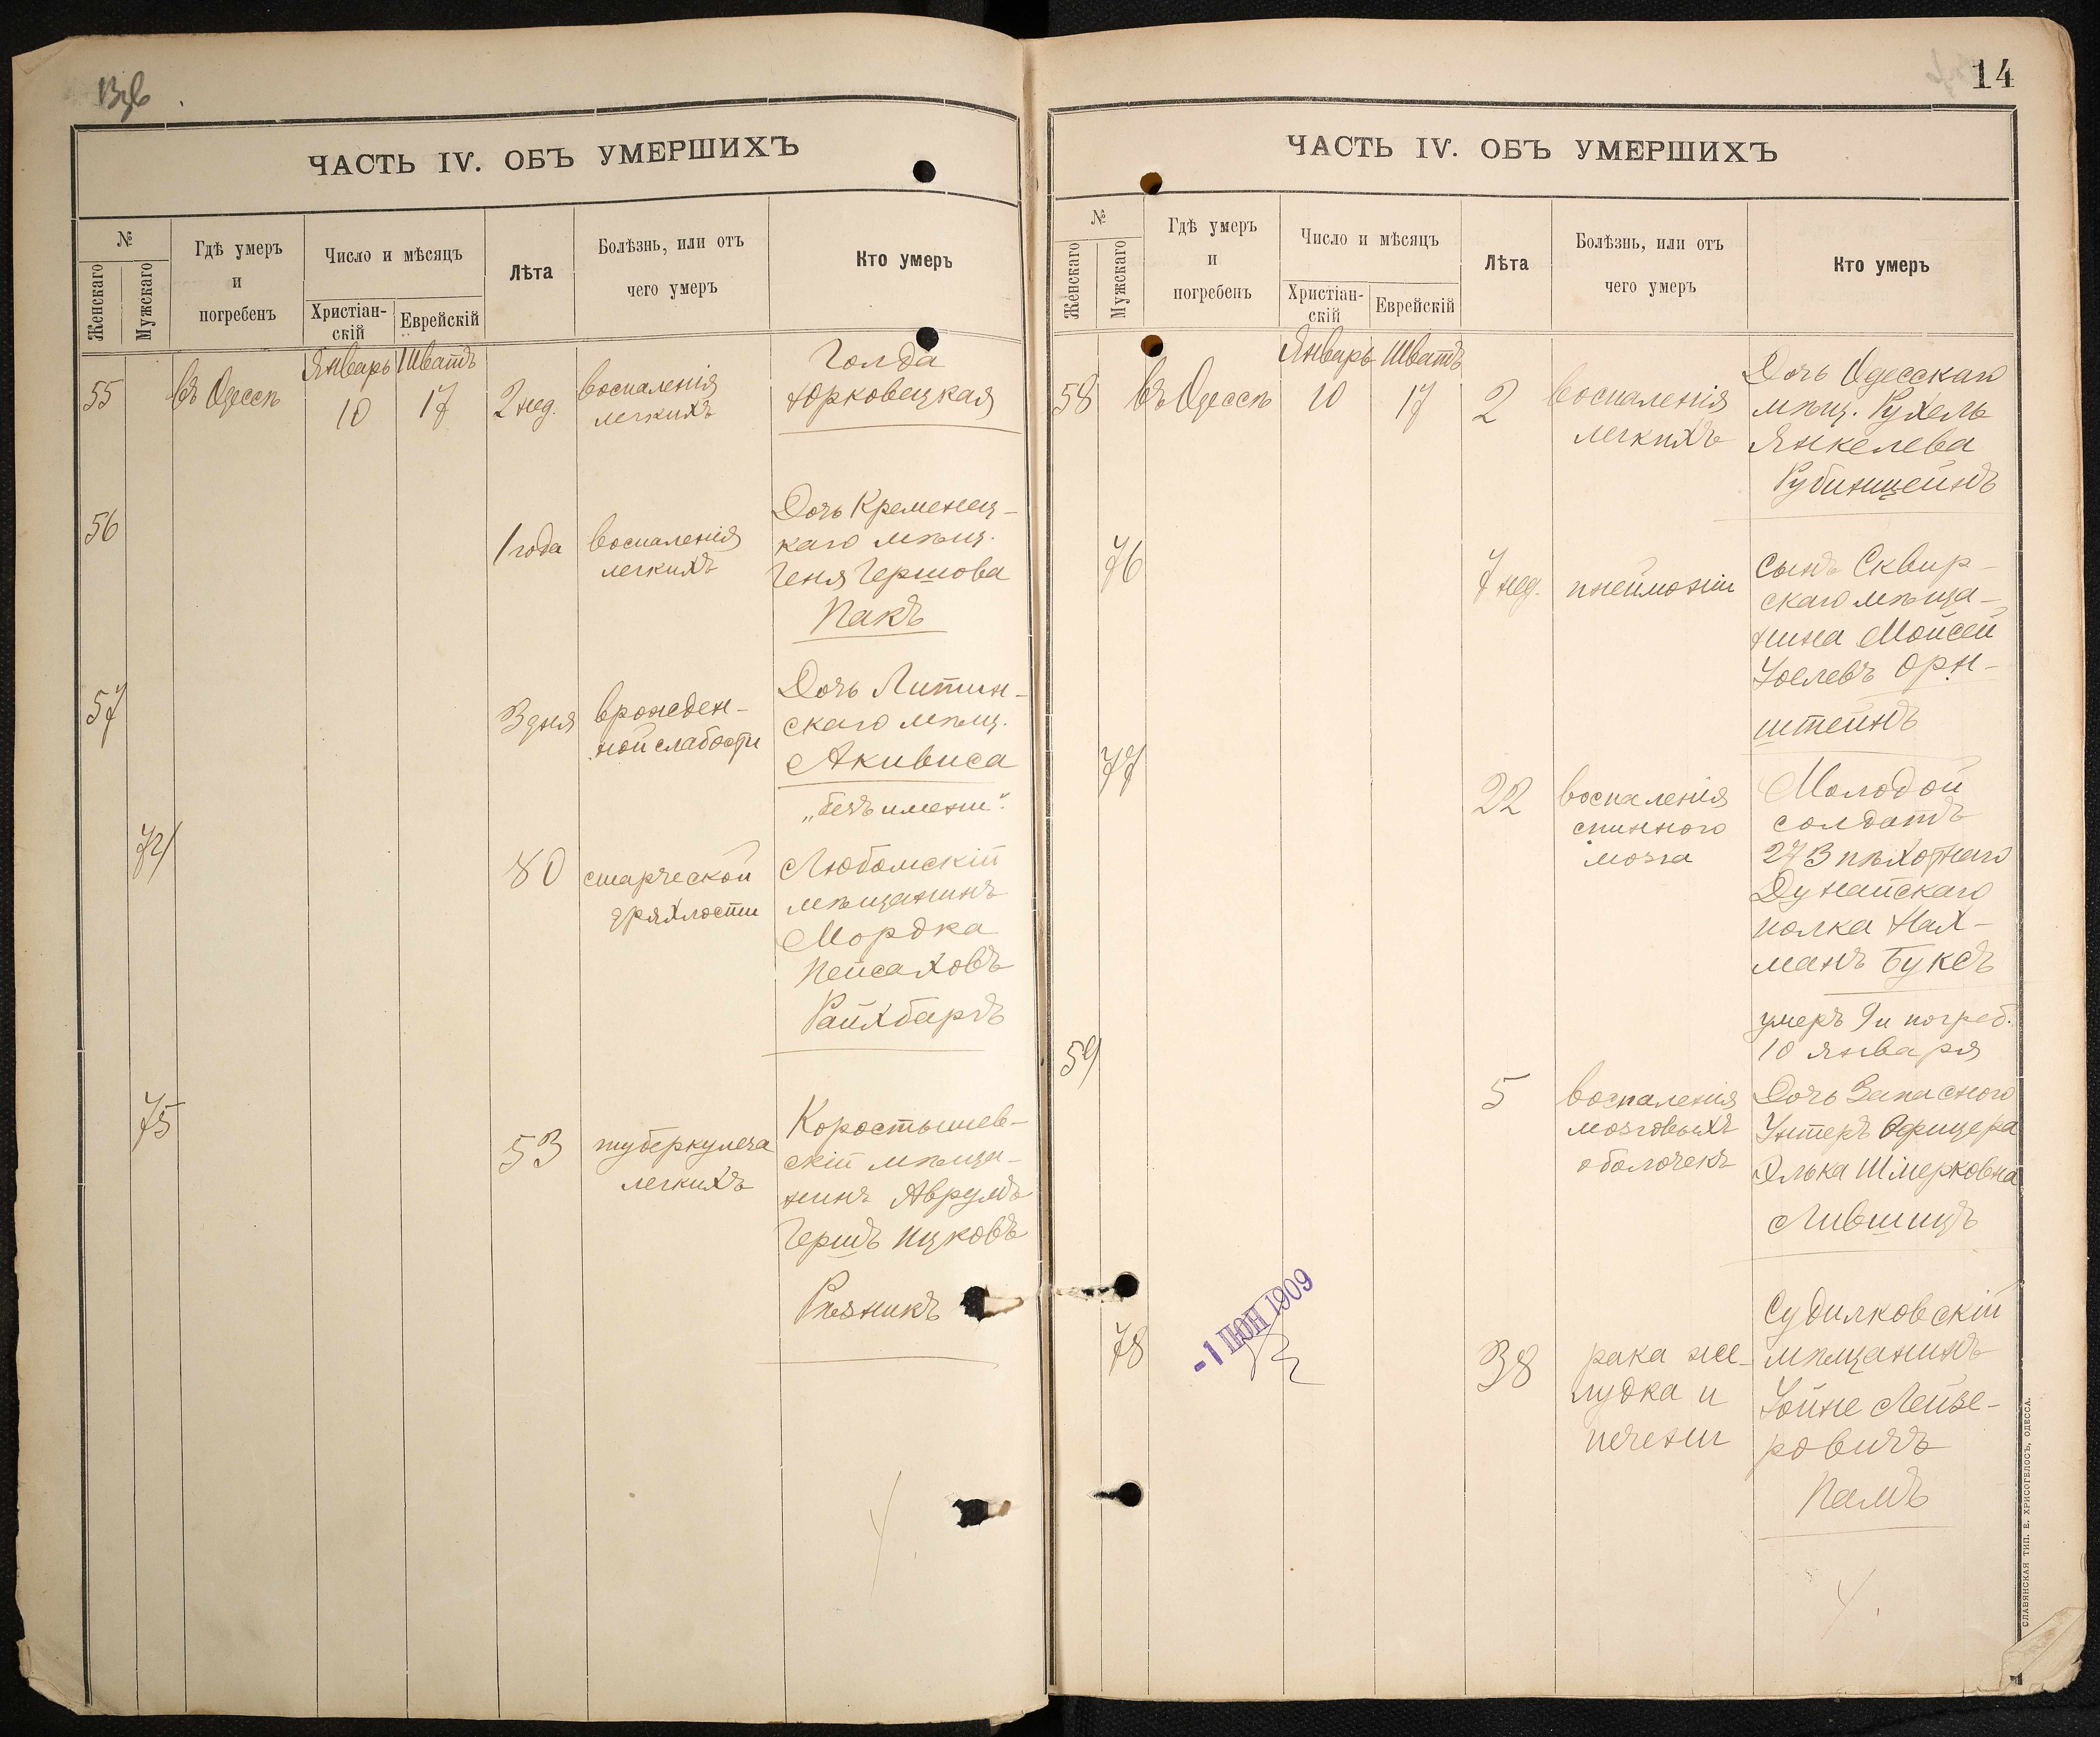 13об
ЧАСТЬ IV. ОБЪ УМЕРШИХЪ
№
Женскаго
Мужскаго
Гдѣ умеръ
и
погребенъ
Число и мѣсяцъ
Христіан-
скій
Еврейскій
Лѣта
Болѣзнь, или отъ
чего умеръ
Кто умеръ
Январь Шватъ
55 въ Одессѣ 10 17 2 нед. воспаленія
легкихъ
Голда
Юрковецкая
56 1 года воспаленія
легкихъ
Дочь Кременец-
каго мѣщ.
Геня Гершова
Пакъ
57 3 дня врожден-
ной слабости
Дочь Литин-
скаго мѣщ.
Акивиса
„безъ имени“.
74 80 старческой
дряхлости
Любомскій
мѣщанинъ
Мордка
Пейсаховъ
Райхбардъ
75 53 туберкулеза
легкихъ
Коростышев-
скій мѣща-
нинъ Аврумъ
Гершъ Ицковъ
Рѣзникъ
14
ЧАСТЬ IV. ОБЪ УМЕРШИХЪ
№
Женскаго
Мужскаго
Гдѣ умеръ
и
погребенъ
Число и мѣсяцъ
Христіан-
скій
Еврейскій
Лѣта
Болѣзнь, или отъ
чего умеръ
Кто умеръ
Январь Шватъ
58 въ Одессѣ 10 17 2 воспаленія
легкихъ
Дочь Одесскаго
мѣщ. Рухель
Янкелева
Рубинщейнъ
76 7 нед. пнеймоніи
Сынъ Сквир-
скаго мѣща-
нина Мойсей
Іоелевъ Орн-
штейнъ
77 22 воспаленія
спинного
мозга
Молодой
солдатъ
273 пѣхотнаго
Дунайскаго
полка Нах-
манъ Буксъ
умеръ 9 и погреб.
10 января
59 5 воспаленія
мозговыхъ
оболочекъ
Дочь Запасного
Унтеръ Офицера
Элька Шмерковна
Лившицъ
78 38 рака же-
лудка и
печени
Судилковскій
мѣщанинъ
Іойне Лейзе-
ровичъ
Палъ
-1 ІЮН 1909
СЛАВЯНСКАЯ ТИП. Е. ХРИСОГЕЛОСЪ, ОДЕССА.